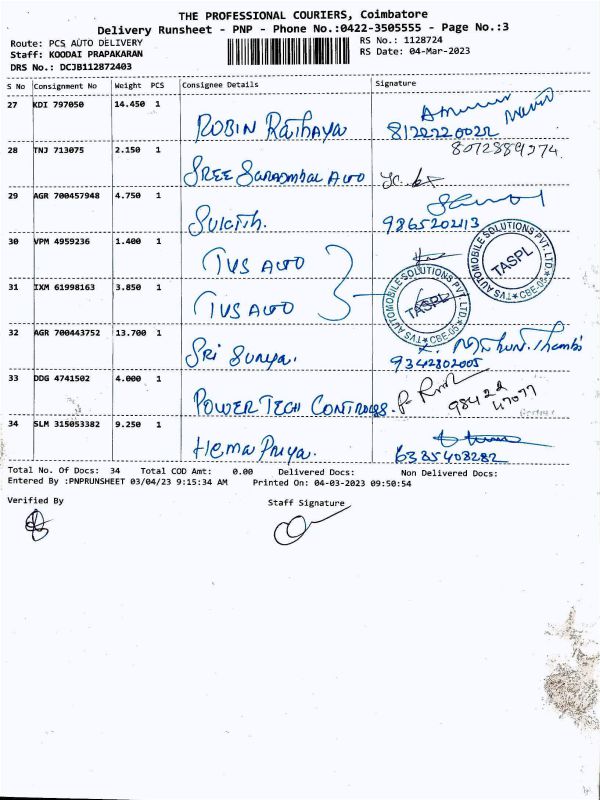 THE PROFESSIONAL COURIERS, Coimbatore
Delivery Runsheet - PNP - Phone No.:0422-3505555 - Page No.:3
Route: PCS AUTO DELIVERY
RS No.: 1128724
Staff: KOODAI PRAPAKARAN
RS Date: 04-Mar-2023
DRS No.: DCJB112872403
S No Consignment No Weight PCS Consignee Details Signature
27 KDI 797050 14.450 1
ROBIN Rathaya 8122220022
28 TNJ 713075 2.150 1 8072889974.
SREE Saradmbal AUTO
29 AGR 700457948 4.750 1
9865202113
30 VPM 4959236 1.400 1
TVS AUTO
TVS AUTOMOBILE SOLUTIONS PVT. LTD. CBE-05 TASPL
31 IXM 61998163 3.850 1
TVS AUTO
TVS AUTOMOBILE SOLUTIONS PVT. LTD. CBE-05 TASPL
32 AGR 700443752 13.700 1
SRI Surya. 9342802005
33 DDG 4741502 4.000 1
POWER TECH CONTROLES. 98422 47077
34 SLM 315053382 9.250 1
Hema Priya. 6385408282
Total No. Of Docs: 34 Total COD Amt: 0.00 Delivered Docs: Non Delivered Docs:
Entered By :PNPRUNSHEET 03/04/23 9:15:34 AM Printed On: 04-03-2023 09:50:54
Verified By Staff Signature